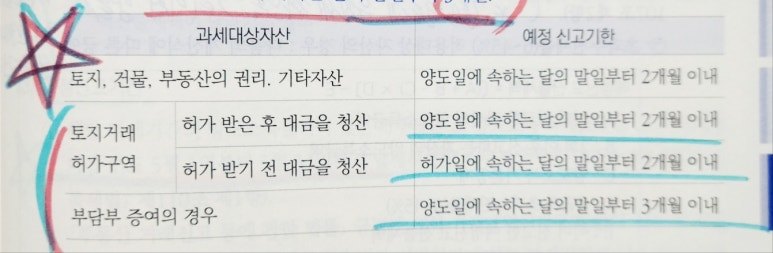 과세대상자산 예정 신고기한
토지, 건물, 부동산의 권리. 기타자산 양도일에 속하는 달의 말일부터 2개월 이내
토지거래 허가구역 허가 받은 후 대금을 청산 양도일에 속하는 달의 말일부터 2개월 이내
허가 받기 전 대금을 청산 허가일에 속하는 달의 말일부터 2개월 이내
부담부 증여의 경우 양도일에 속하는 달의 말일부터 3개월 이내